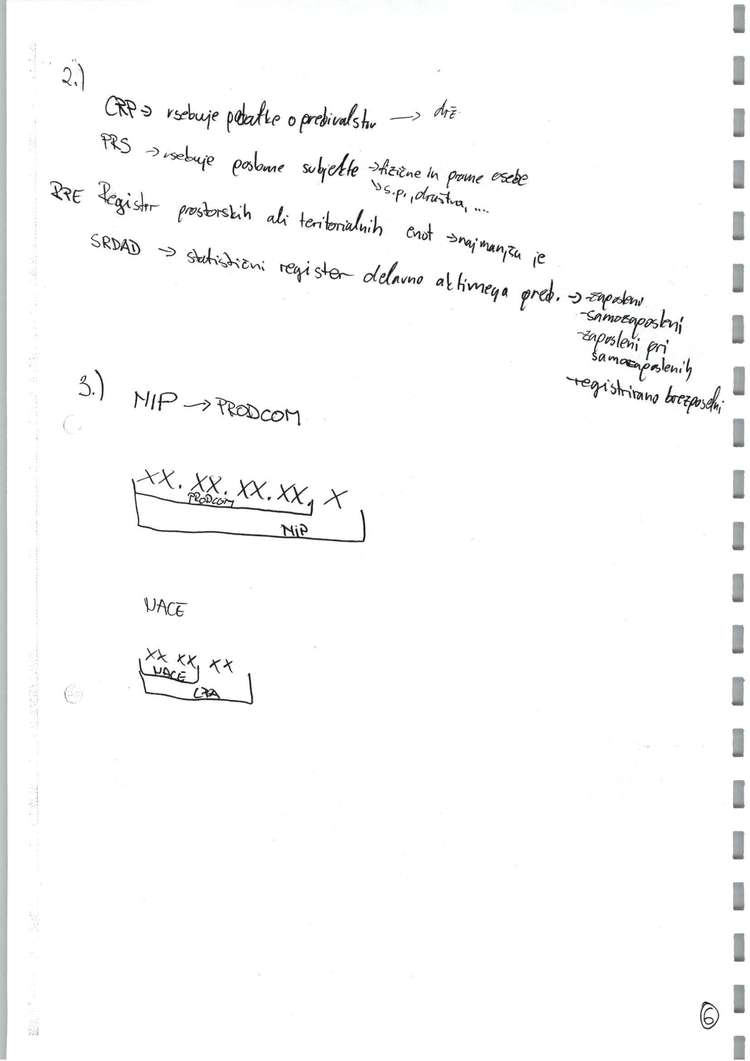 2.)
CRP → vsebuje podatke o prebivalstvu →
PRS → vsebuje poslovne subjekte → fizične in pravne osebe
↳ s.p., društva, ....
RPE Register prostorskih ali teritorialnih enot → najmanjša je
SRDAD → statistični register delovno aktivnega preb. → -zaposleni
-samozaposleni
-zaposleni pri
samozaposlenih
-registrirano brezposelni
3.) NIP → PRODCOM
XX. XX. XX. XX, X
PRODCOM
NIP
NACE
XX XX, XX
NACE
CPA
6